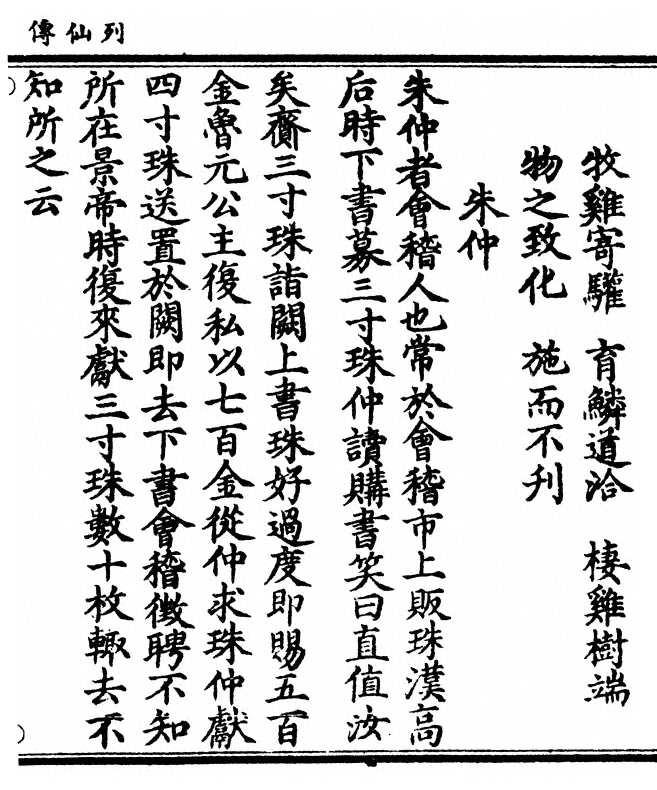 列仙傳
牧雞寄驩　育鱗道洽　棲雞樹端
物之致化　施而不刋
朱仲
朱仲者會稽人也常於會稽市上販珠漢高
后時下書募三寸珠仲讀購書笑曰直值汝
矣齎三寸珠詣闕上書珠好過度即賜五百
金魯元公主復私以七百金從仲求珠仲獻
四寸珠送置於闕即去下書會稽徵聘不知
所在景帝時復來獻三寸珠數十枚輙去不
知所之云